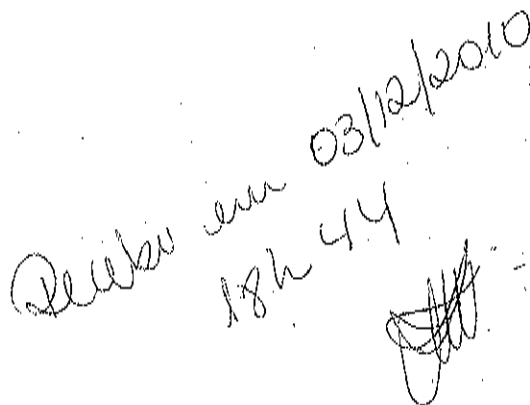 Recebi em 03/12/2010
18h44